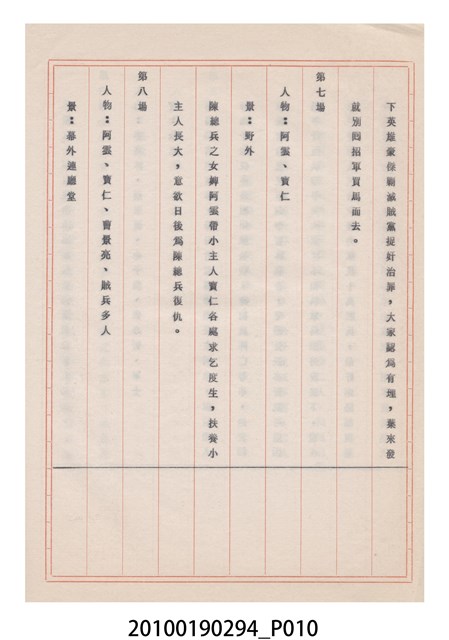 下英雄豪傑剿滅賊黨捉奸治罪，大家認爲有理，葉來發
就別回招軍買馬而去。
第七場
人物：阿雲、寶仁
景：野外
陳總兵之女婢阿雲帶小主人寶仁各處求乞度生，扶養小
主人長大，意欲日後爲陳總兵復仇。
第八場
人物：阿雲、寶仁、曹景亮、賊兵多人
景：幕外連廳堂
20100190294_P010